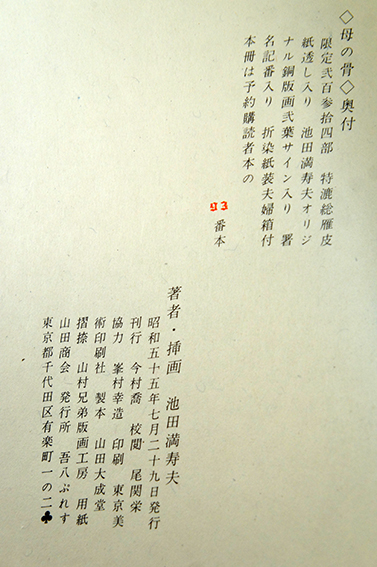 ◇母の骨◇奥付
限定弐百参拾四部　特漉総雁皮
紙透し入り　池田満寿夫オリジ
ナル銅版画弐葉サイン入り　署
名記番入り　折染紙装夫婦箱付
本冊は予約購読者本の
93 番本
著者・挿画　池田満寿夫
昭和五十五年七月二十九日発行
刊行　今村喬　校閲　尾関栄
協力　峯村幸造　印刷　東京美
術印刷社　製本　山田大成堂
摺捺　山村兄弟版画工房　用紙
山田商会　発行所　吾八ぷれす
東京都千代田区有楽町一の二♣